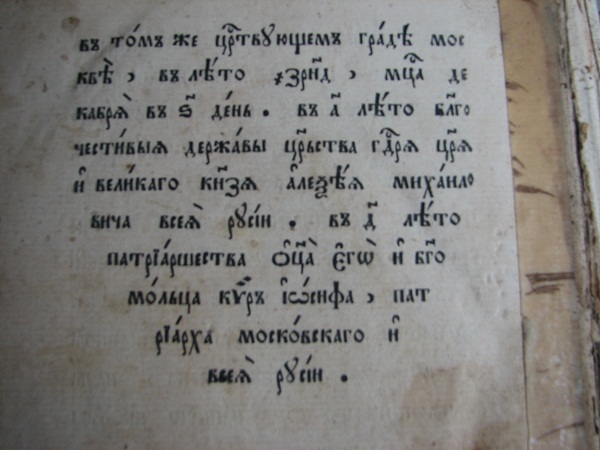 въ то́мъ же црⷭ҇твующемъ гра́дѣ мос
квѣ̀ , въ лѣ́то ҂зрн҃д , мцⷭ҇а де
кабрѧ̀ въ ѕ҃ де́нь . въ а҃ лѣ́то бл҃го
чести́выѧ держа́вы цр҃ьства гдⷭ҇рѧ цр҃ѧ
и҆ вели́каго кн҃зѧ а҆леѯѣ́ѧ миха́ило
вича всеѧ̀ рꙋсі́и . въ д҃ лѣ́то
патрїа́ршества ѻ҆ц҃а̀ є҆гѡ̀ и҆ бг҃о
мо́льца кѵ́ръ і҆ѡ́сифа , пат
рїа́рха моско́вскаго и҆
всеѧ̀ рꙋсі́и .